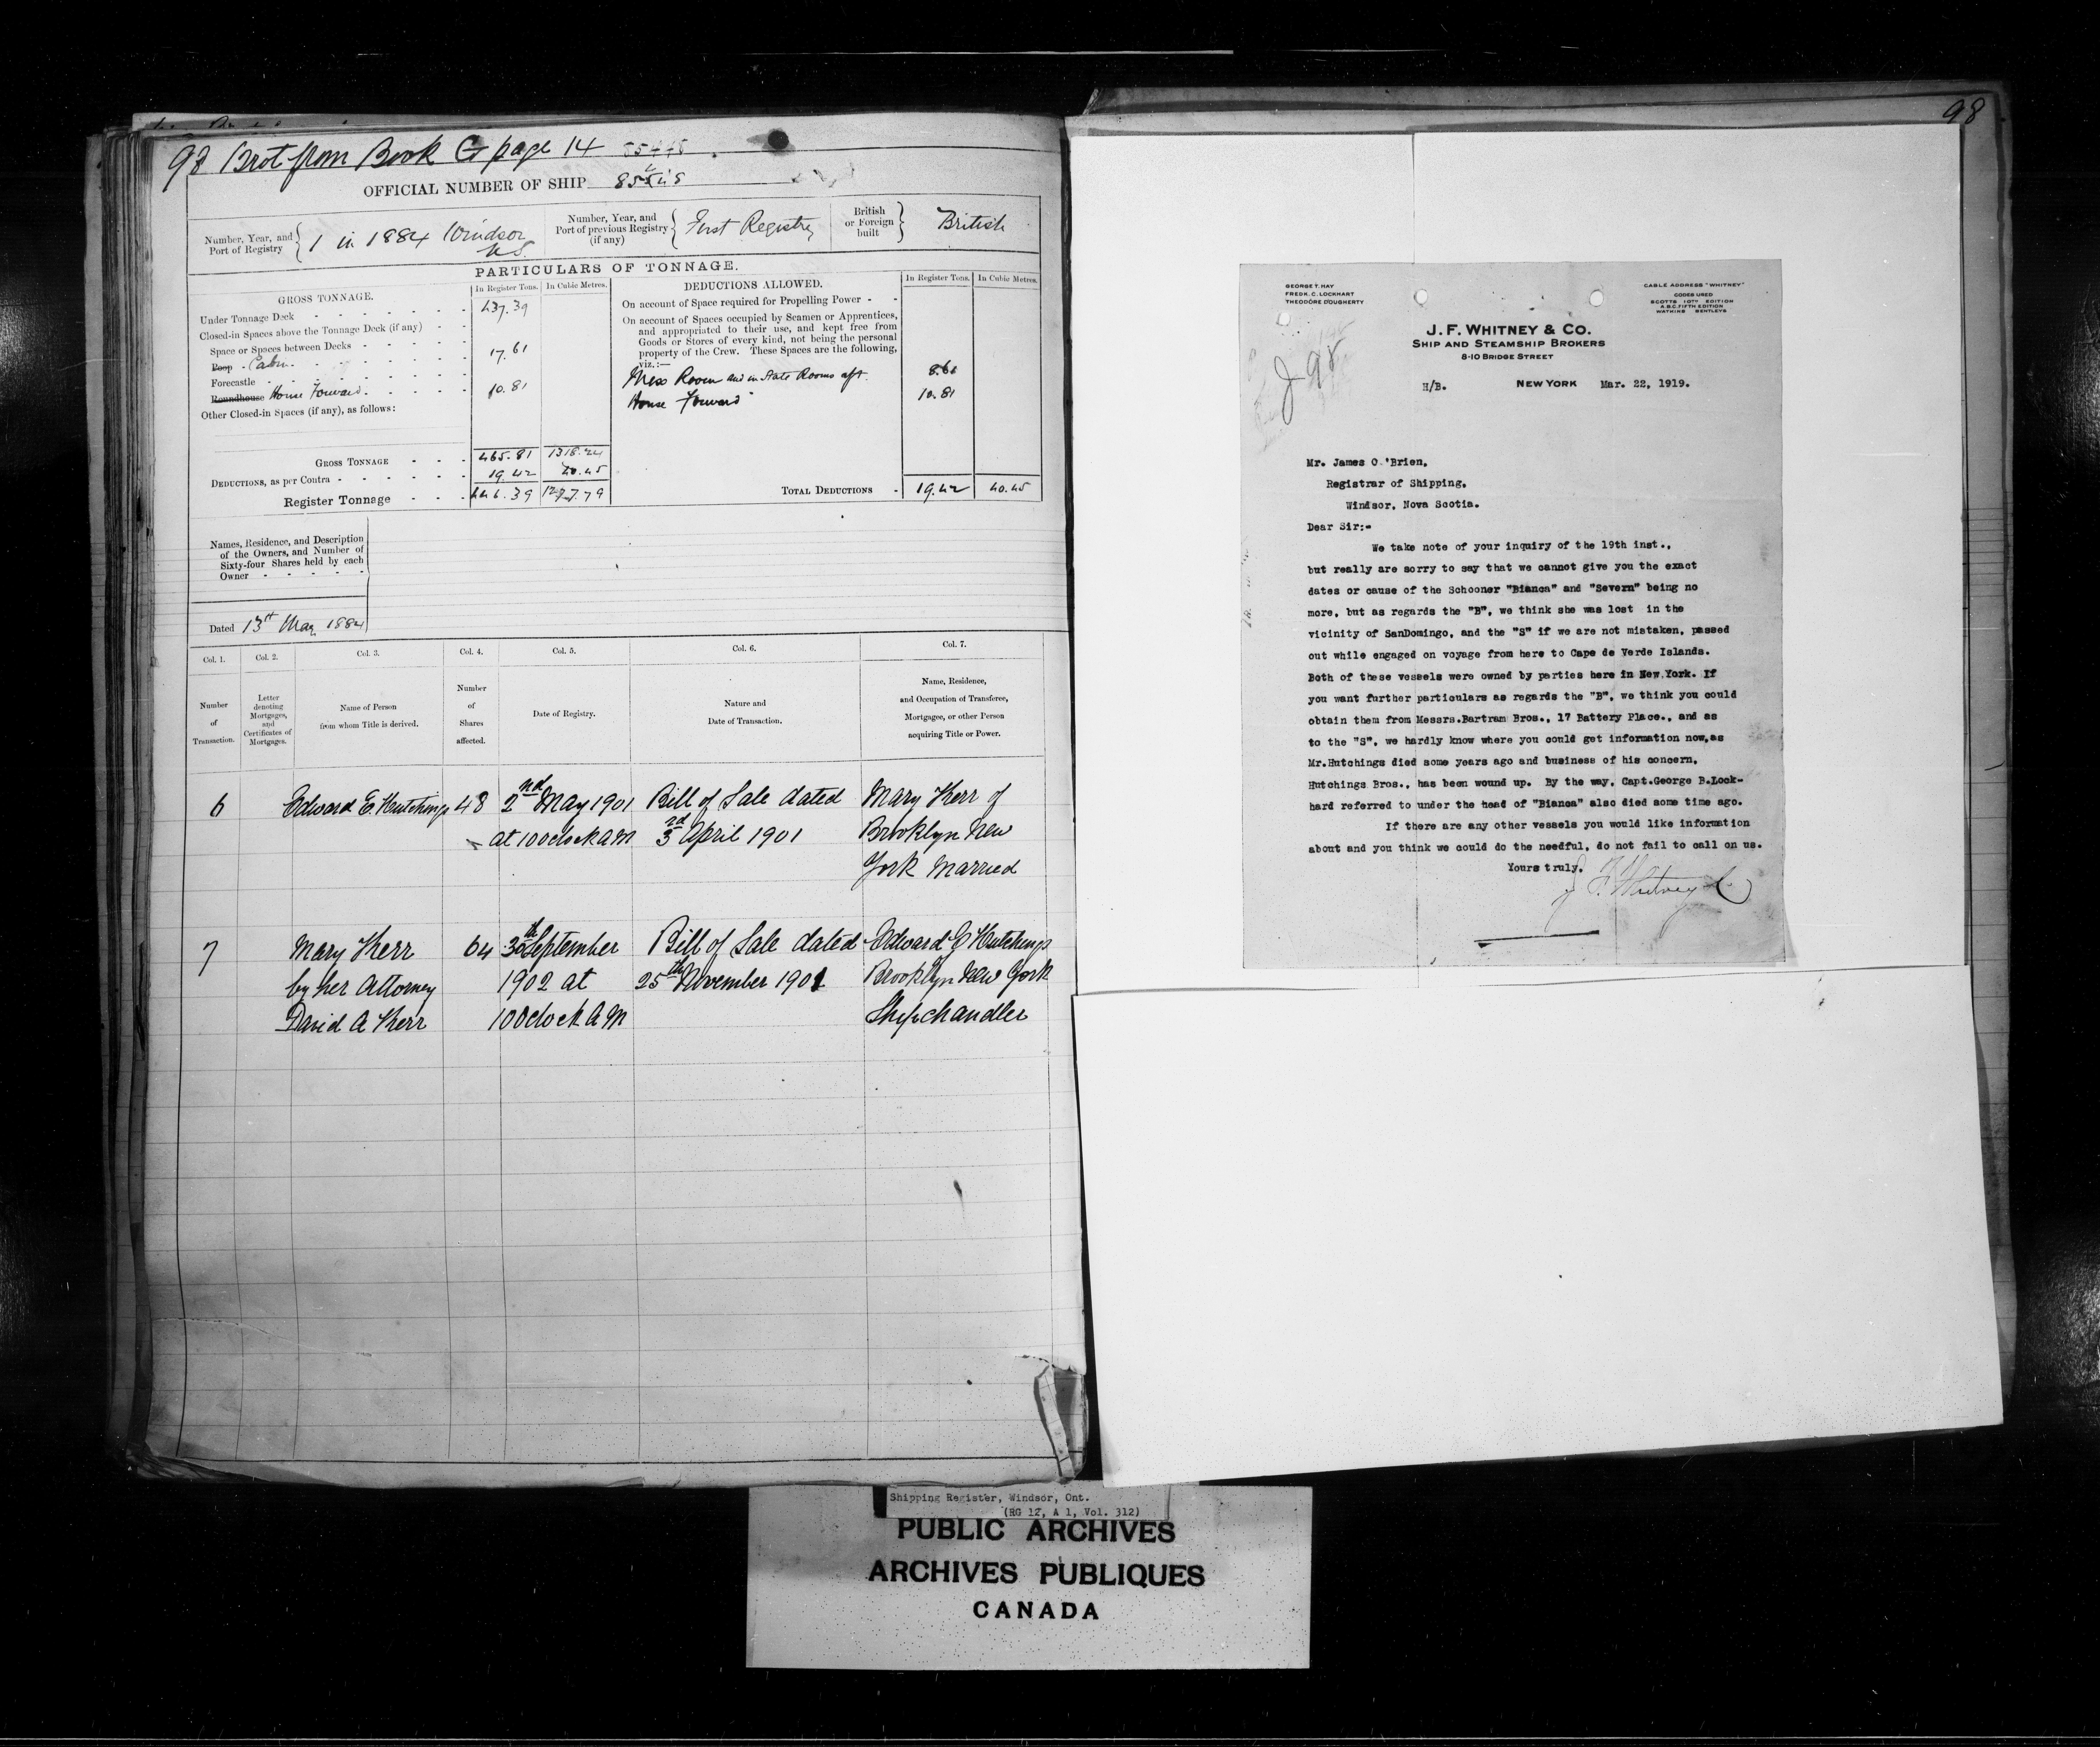 98 Brot from Book G page 14
OFFICIAL NUMBER OF SHIP
Number, Year, and Port of Registry { 1 in 1884 Windsor N.S.
Number, Year, and Port of previous Registry (if any) { First Registry
British or Foreign built } British
PARTICULARS OF TONNAGE.
GROSS TONNAGE. In Register Tons. In Cubic Metres.
Under Tonnage Deck - 437.39
Closed-in Spaces above the Tonnage Deck (if any) -
Space or Spaces between Decks -
Poop - Cabin - 17.61
Forecastle -
Roundhouse House Forward - 10.81
Other Closed-in Spaces (if any), as follows:
GROSS TONNAGE - 465.81 1318.24
DEDUCTIONS, as per Contra - 19.42
Register Tonnage - 446.39
DEDUCTIONS ALLOWED. In Register Tons. In Cubic Metres.
On account of Space required for Propelling Power -
On account of Spaces occupied by Seamen or Apprentices,
and appropriated to their use, and kept free from
Goods or Stores of every kind, not being the personal
property of the Crew. These Spaces are the following,
viz.:—
Mess Room and in State Rooms aft 8.61
House Forward 10.81
TOTAL DEDUCTIONS - 19.42 40.45
Names, Residence, and Description
of the Owners, and Number of
Sixty-four Shares held by each
Owner -
Dated 13th May 1884
Col. 1. Col. 2. Col. 3. Col. 4. Col. 5. Col. 6. Col. 7.
Number of Transaction.
Letter denoting Mortgages, and Certificates of Mortgages.
Name of Person from whom Title is derived.
Number of Shares affected.
Date of Registry.
Nature and Date of Transaction.
Name, Residence, and Occupation of Transferee, Mortgagee, or other Person acquiring Title or Power.
6 Edward E. Hutchings 48 2nd May 1901 Bill of Sale dated Mary Kerr of
at 10 Oclock AM 3rd April 1901 Brooklyn New
York Married
7 Mary Kerr 64 30th September Bill of Sale dated Edward E Hutchings
by her Attorney 1902 at 25th November 1901 Brooklyn New York
David A Kerr 10 Oclock AM Shipchandler
98
GEORGE T. HAY
FREDK. C. LOCKHART
THEODORE DOUGHERTY
CABLE ADDRESS "WHITNEY"
CODES USED
SCOTTS 10TH EDITION
A.B.C. FIFTH EDITION
WATKINS BENTLEYS
J 98
J. F. WHITNEY & CO.
SHIP AND STEAMSHIP BROKERS
8-10 BRIDGE STREET
H/B. NEW YORK Mar. 22, 1919.
Mr. James O'Brien,
Registrar of Shipping,
Windsor, Nova Scotia.
Dear Sir:-
We take note of your inquiry of the 19th inst.,
but really are sorry to say that we cannot give you the exact
dates or cause of the Schooner "Bianca" and "Severn" being no
more, but as regards the "B", we think she was lost in the
vicinity of SanDomingo, and the "S" if we are not mistaken, passed
out while engaged on voyage from here to Cape de Verde Islands.
Both of these vessels were owned by parties here in New York. If
you want further particulars as regards the "B", we think you could
obtain them from Messrs.Bartram Bros., 17 Battery Place., and as
to the "S", we hardly know where you could get information now,as
Mr.Hutchings died some years ago and business of his concern,
Hutchings Bros., has been wound up. By the way, Capt.George B.Lock-
hard referred to under the head of "Bianca" also died some time ago.
If there are any other vessels you would like information
about and you think we could do the needful, do not fail to call on us.
Yours truly,
J. F. Whitney Co
Shipping Register, Windsor, Ont.
(RG 12, A 1, Vol. 312)
PUBLIC ARCHIVES
ARCHIVES PUBLIQUES
CANADA